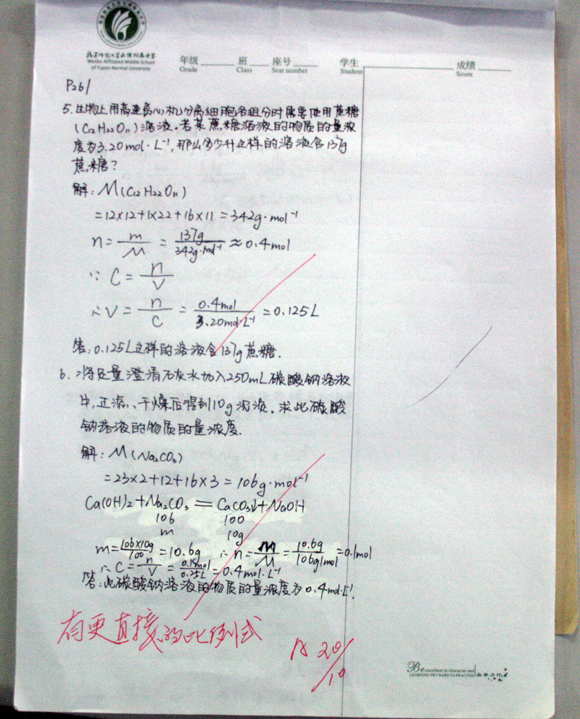 Wenbo Affiliated Middle School
of Fujian Normal University
年级 班 座号 学生 成绩
Grade Class Seat number Student Score
P261
5. 生物上用高速离心机分离细胞各组分时需要使用蔗糖
(C12H22O11)溶液。若某蔗糖溶液的物质的量浓
度为3.20mol·L⁻¹,那么多少升这样的溶液含137g
蔗糖?
解: M(C12H22O11)
=12×12+1×22+16×11=342g·mol⁻¹
n= m/M = 137g/342g·mol⁻¹ ≈0.4mol
∵ C= n/V
∴V= n/C = 0.4mol/3.20mol·L⁻¹ =0.125L
答: 0.125L这样的溶液含137g蔗糖.
6. 将足量澄清石灰水加入250mL碳酸钠溶液
中,过滤、干燥后得到10g沉淀. 求此碳酸
钠溶液的物质的量浓度.
解: M(Na2CO3)
=23×2+12+16×3=106g·mol⁻¹
Ca(OH)2+Na2CO3═CaCO3↓+NaOH
106 100
m 10g
m=106×10g/100=10.6g ∴n=m/M=10.6g/106g/mol=0.1mol
∴C=n/V=0.1mol/0.25L=0.4mol·L⁻¹
答:此碳酸钠溶液的物质的量浓度为0.4mol·L⁻¹.
有更直接的比例式
A 20/10